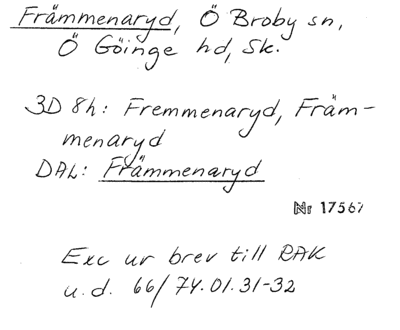 Främmenaryd, Ö Broby sn,
Ö Göinge hd, Sk.
3D 8h: Fremmenaryd, Främ-
menaryd
DAL: Främmenaryd
Nr 17567
Exc ur brev till RAK
u.d. 66/74.01.31-32